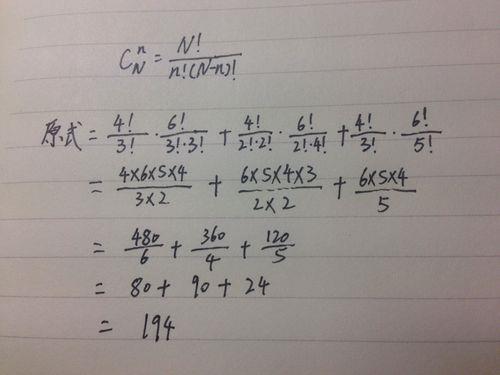 C_N^n = N! / n!(N-n)!
原式 = 4!/3! · 6!/3!·3! + 4!/2!·2! · 6!/2!·4! + 4!/3! · 6!/5!
= 4×6×5×4 / 3×2 + 6×5×4×3 / 2×2 + 6×5×4 / 5
= 480/6 + 360/4 + 120/5
= 80 + 90 + 24
= 194